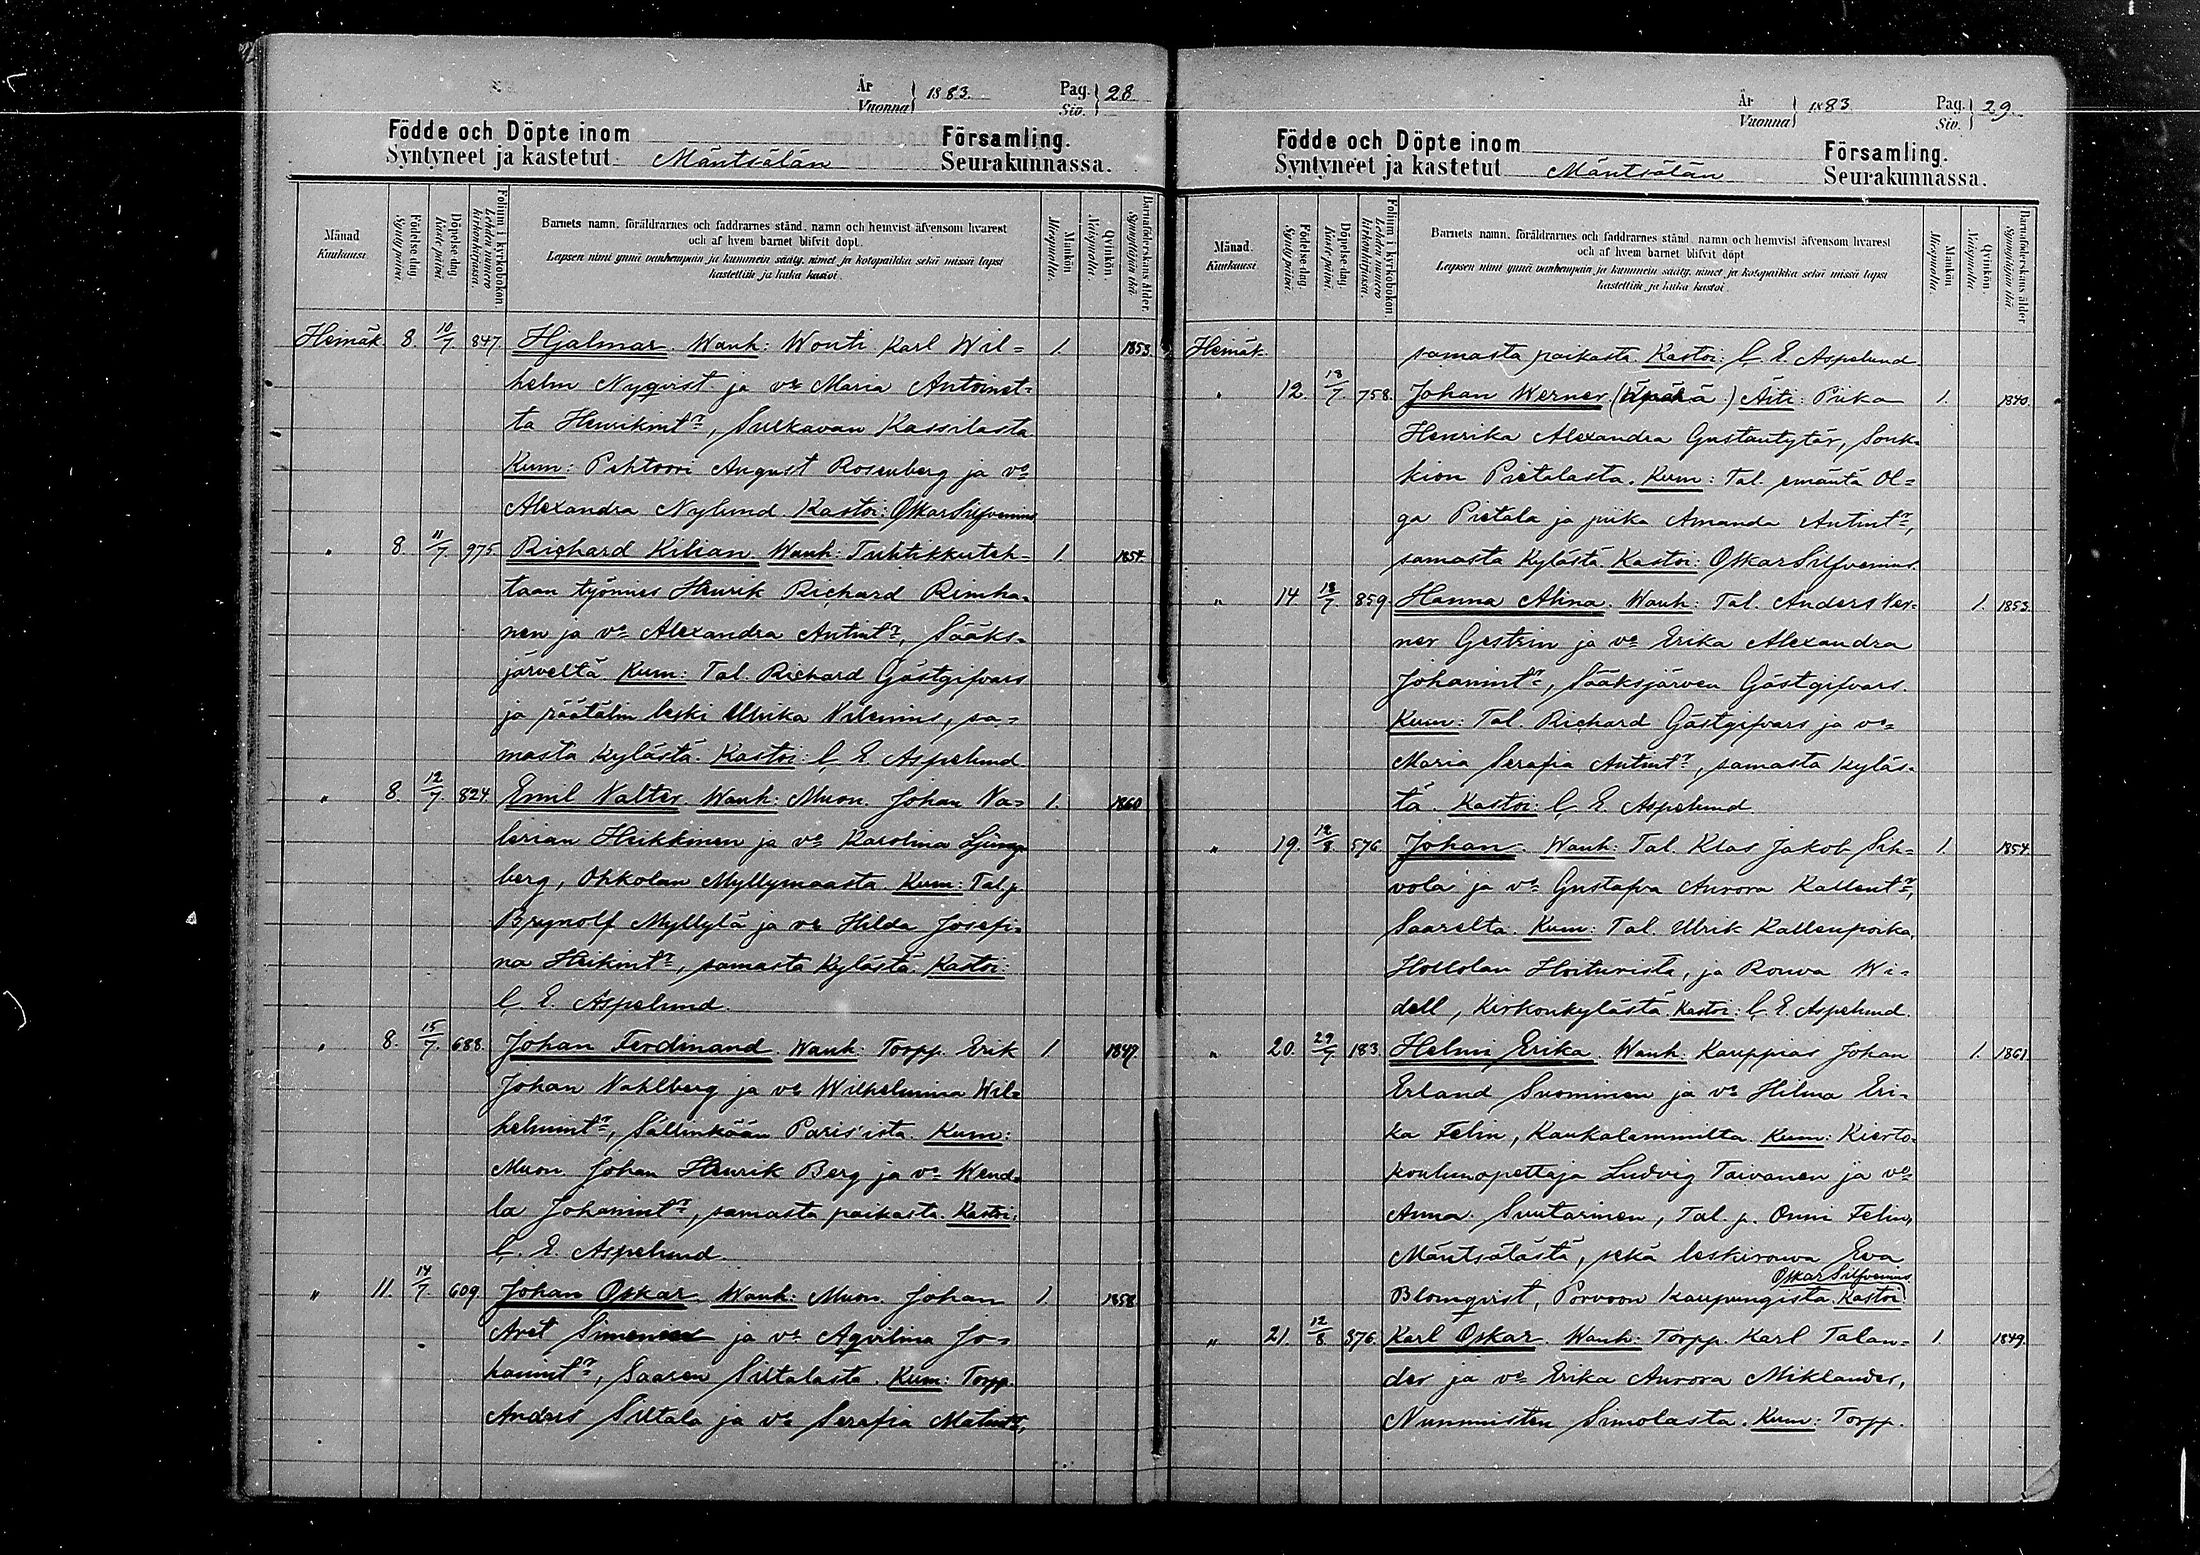 År
Vuonna } 1883. Pag.
Siv. } 28
Födde och Döpte inom Församling.
Syntyneet ja kastetut Mäntsälän Seurakunnassa.
Månad
Kuukausi.
Födelsedag.
Syntypäivä.
Döpelsedag.
Kastepäivä.
Folium i kyrkobokon.
Lehden numero
kirkonkirjassa.
Barnets namn, föräldrarnes och faddrarnes stånd, namn och hemvist äfvensom hvarest
och af hvem barnet blifvit döpt.
Lapsen nimi ynnä vanhempain ja kummein sääty, nimet ja kotopaikka sekä missä lapsi
kastettiin ja kuka kastoi.
Mankön.
Miespuolta.
Qvinkön.
Naispuolta.
Barnaföderskans ålder.
Synnyttäjän ikä.
Heinäk. 8. 10/7. 847. Hjalmar. Wanh: Wouti Karl Wil= 1. 1853.
helm Nyqvist ja vo Maria Antoinet-
ta Henrikintr, Surkavan Kassilasta
Kum: Pehtoori August Rosenberg ja vo
Alexandra Nylund. Kastoi: Oskar Silfvenius
" 8. 11/7. 975. Richard Kilian. Wanh: Tulitikkuteh- 1. 1854.
taan työmies Henrik Richard Rimha-
nen ja vo Alexandra Antintr, Sääks-
järveltä. Kum: Tal. Richard Gästgifvars
ja räätälin leski Ulrika Vilenius, sa=
masta kylästä. Kastoi: C. E. Aspelund.
" 8. 12/7. 824. Emil Valter. Wanh: Muon. Johan Va= 1. 1860
lerian Heikkinen ja vo Karolina Ljung-
berg, Ohkolan Myllymaasta. Kum: Tal.p.
Brynolf Myllylä ja vo Hilda Josefi-
na Heikintr, samasta kylästä. Kastoi:
C. E. Aspelund.
" 8. 15/7. 688. Johan Ferdinand. Wanh: Torpp. Erik 1. 1847.
Johan Vahlberg ja vo Wilhelmina Wil-
helmintr, Sällinkään Paris'ista. Kum:
Muon. Johan Henrik Berg ja vo Wend-
la Johanintr, samasta paikasta. Kastoi:
C. E. Aspelund.
" 11. 14/7. 609. Johan Oskar. Wanh: Muon. Johan 1. 1858.
Aret Simenius ja vo Aqvilina Jo-
hanintr, Saaren Siltalasta. Kum: Torpp.
Anders Siltala ja vo Serafia Matintr,
År
Vuonna } 1883 Pag.
Siv. } 29.
Födde och Döpte inom Församling.
Syntyneet ja kastetut Mäntsälän Seurakunnassa.
Månad.
Kuukausi.
Födelsedag.
Syntypäivä.
Döpelsedag.
Kastepäivä.
Folium i kyrkobokon.
Lehden numero
kirkonkirjassa.
Barnets namn, föräldrarnes och faddrarnes stånd, namn och hemvist äfvensom hvarest
och af hvem barnet blifvit döpt.
Lapsen nimi ynnä vanhempain ja kummein sääty, nimet ja kotopaikka sekä missä lapsi
kastettiin ja kuka kastoi.
Mankön.
Miespuolta.
Qvinkön.
Naispuolta.
Barnaföderskans ålder
Synnyttäjän ikä.
Heinäk. samasta paikasta. Kastoi: C. E. Aspelund.
" 12. 18/7. 758. Johan Werner (äpärä) Äiti: Piika 1. 1840.
Henrika Alexandra Gustantytär, Souk-
kion Pietalasta. Kum: Tal. emäntä Ol=
ga Pietala ja piika Amanda Antintr,
samasta kylästä. Kastoi: Oskar Silfvenius.
" 14 18/7. 859. Hanna Alina. Wanh: Tal. Anders Ver- 1. 1853.
ner Gestrin ja vo Erika Alexandra
Johanintr, Sääksjärven Gästgifvars.
Kum: Tal. Richard Gästgifvars ja vo
Maria Serafia Antintr, samasta kyläs-
tä. Kastoi: C. E. Aspelund.
" 19. 12/8. 576 Johan. Wanh: Tal. Klas Jakob Sih- 1. 1854.
vola ja vo Gustafva Aurora Kallentr,
Saarelta. Kum: Tal. Ulrik Kallenpoika,
Hollolan Hoiturista, ja Rouva Wi-
dell, Kirkonkylästä. Kastoi: C. E. Aspelund.
" 20. 29/7 183. Helmi Erika. Wanh: Kauppias Johan 1. 1861
Erland Suominen ja vo Hilma Eri-
ka Felin, Kaukalammilta. Kum: Kierto-
koulunopettaja Ludvig Taivanen ja vo
Anna Suutarinen, Tal. p. Onni Felin,
Mäntsälästä, sekä leskirouva Eva
Oskar Silfvenius
Blomqvist, Porvoon kaupungista. Kastoi
" 21. 12/8 376. Karl Oskar. Wanh: Torpp. Karl Talan- 1. 1849.
der ja vo Erika Aurora Miklander,
Nummisten Simolasta. Kum: Torpp.